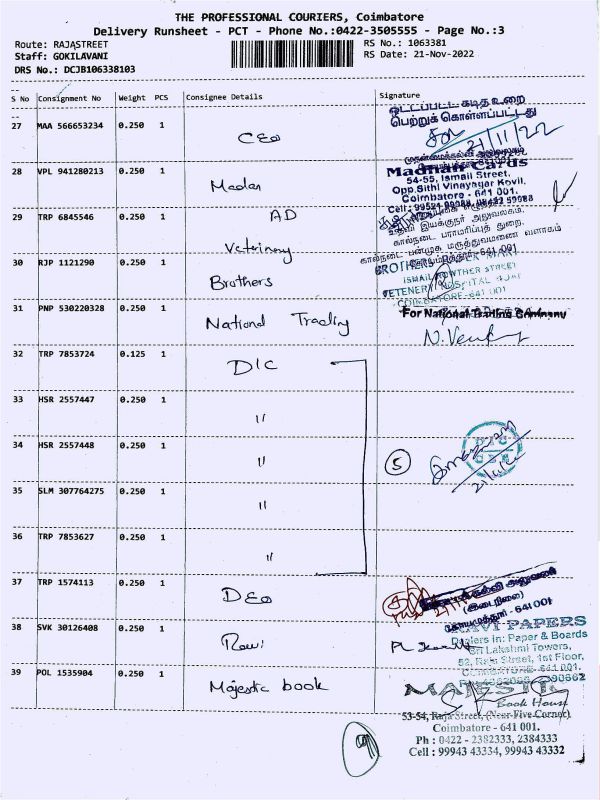 THE PROFESSIONAL COURIERS, Coimbatore
Delivery Runsheet - PCT - Phone No.:0422-3505555 - Page No.:3
Route: RAJASTREET
RS No.: 1063381
Staff: GOKILAVANI
RS Date: 21-Nov-2022
DRS No.: DCJB106338103
S No Consignment No Weight PCS Consignee Details Signature
27 MAA 566653234 0.250 1 CEO
ஒட்டப்பட்ட கடித உறை
பெற்றுக் கொள்ளப்பட்டது
21/11/22
28 VPL 941280213 0.250 1
Madhan Cards
54-55, Ismail Street,
Opp.Sithi Vinayagar Kovil,
Coimbatore - 641 001.
29 TRP 6845546 0.250 1 AD
Veterinary
உதவி இயக்குநர் அலுவலகம்,
கால்நடை பராமரிப்புத் துறை,
கால்நடை பன்முக மருத்துவமனை வளாகம்
30 RJP 1121290 0.250 1 Brothers
BROTHERS
ISMAIL ROWTHER STREET
COIMBATORE-641 001
31 PNP 530220328 0.250 1 National Trading
For National Trading Company
32 TRP 7853724 0.125 1 DIC
33 HSR 2557447 0.250 1 "
34 HSR 2557448 0.250 1 "
5
DIC
35 SLM 307764275 0.250 1 "
36 TRP 7853627 0.250 1 "
37 TRP 1574113 0.250 1 DEO
(இடைநிலை)
கோயமுத்தூர் - 641 001
38 SVK 30126408 0.250 1 Ravi
RAVI PAPERS
Dealers in: Paper & Boards
Sri Lakshmi Towers,
52, Raja Street, 1st Floor,
COIMBATORE - 641 001.
39 POL 1535904 0.250 1 Majestic book
MAJESTIC
Book House
53-54, Raja Street, (Near Five Corner)
Coimbatore - 641 001.
Ph : 0422 - 2382333, 2384333
Cell : 99943 43334, 99943 43332